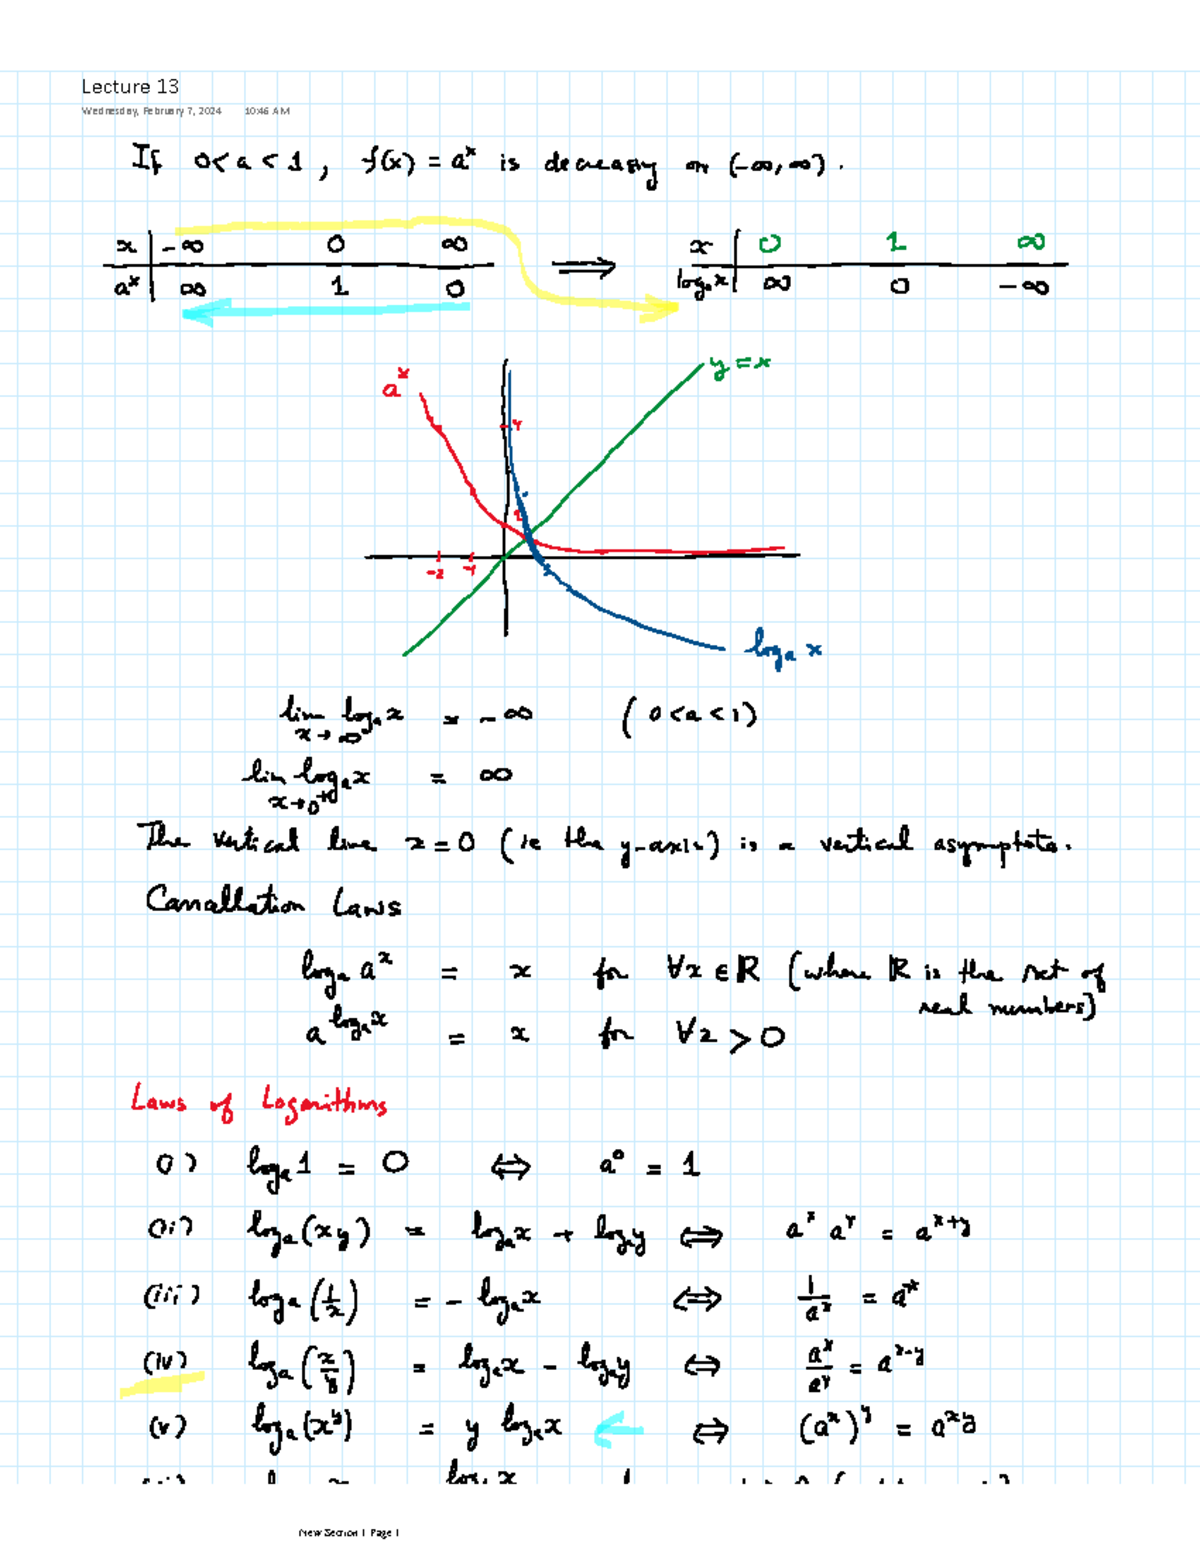 Lecture 13
Wednesday, February 7, 2024 10:46 AM
If 0 < a < 1 , f(x) = aˣ is decreasing on (-∞, ∞) .
x | -∞ 0 ∞ ⟹ x | 0 1 ∞
aˣ | ∞ 1 0 logₐx | ∞ 0 -∞
aˣ y = x
4
1
-2 -1
logₐ x
lim logₐx = -∞ (0 < a < 1)
x → ∞
lim logₐx = ∞
x → 0⁺
The vertical line x = 0 (ie the y-axis) is a vertical asymptote.
Cancellation Laws
logₐ aˣ = x for ∀x ∈ ℝ (where ℝ is the set of
real numbers)
a^(logₐx) = x for ∀x > 0
Laws of Logarithms
(i) logₐ1 = 0 ⇔ a⁰ = 1
(ii) logₐ(xy) = logₐx + logₐy ⇔ aˣ aʸ = aˣ⁺ʸ
(iii) logₐ(1/x) = - logₐx ⇔ 1/aˣ = a⁻ˣ
(iv) logₐ(x/y) = logₐx - logₐy ⇔ aˣ/aʸ = aˣ⁻ʸ
(v) logₐ(xʸ) = y logₐx ⇔ (aˣ)ʸ = aˣʸ
New Section 1 Page 1